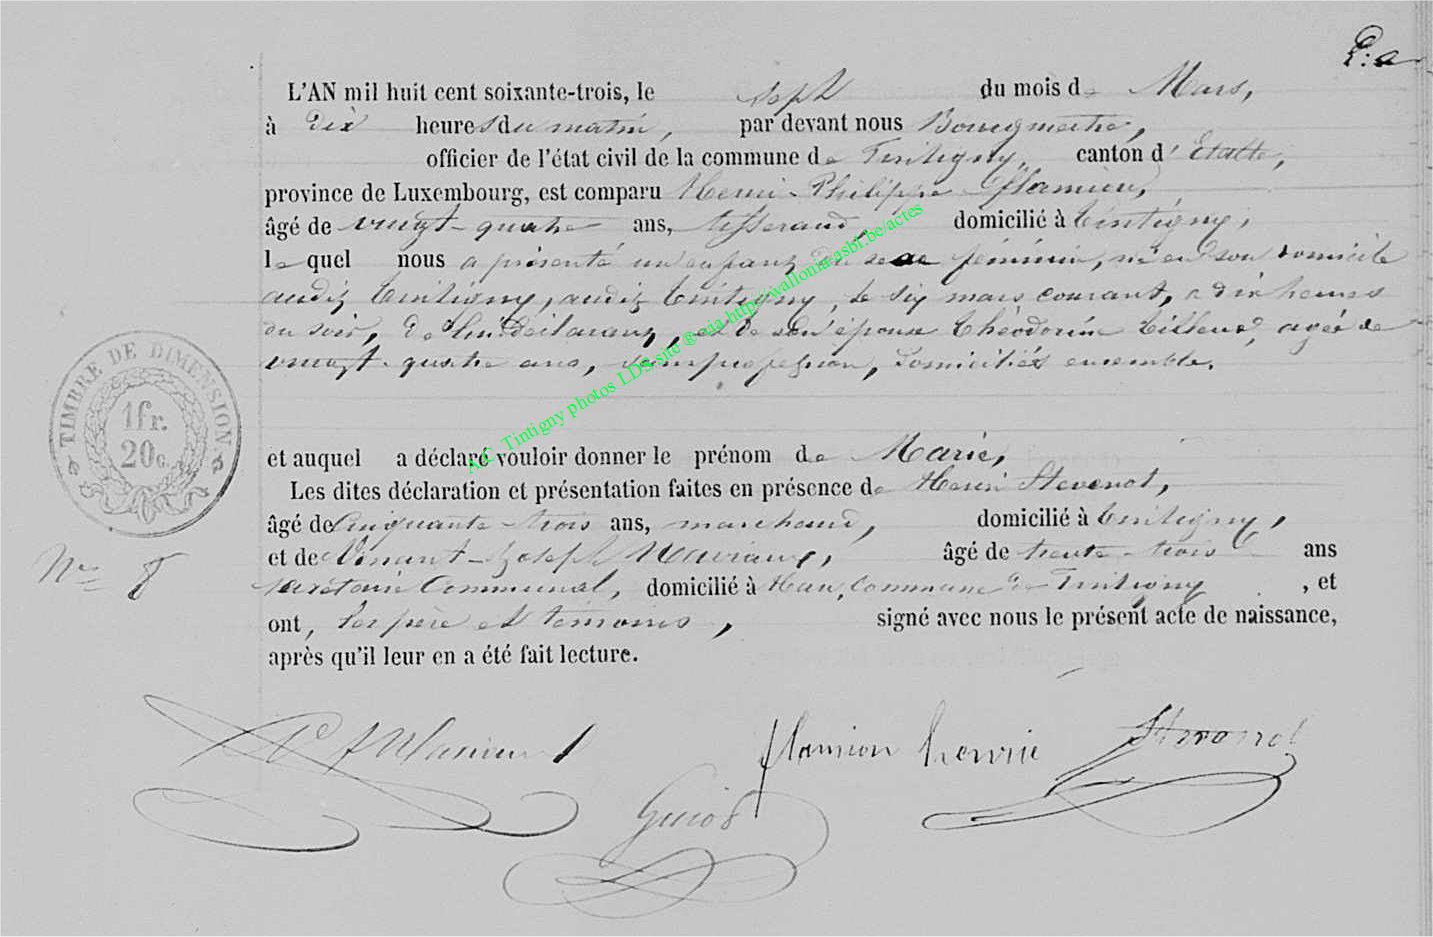 P: a
L'AN mil huit cent soixante-trois, le sept du mois de Mars,
à dix heures du matin, par devant nous Bourgmestre,
officier de l'état civil de la commune de Tintigny, canton d' Etalle,
province de Luxembourg, est comparu Henri-Philippe Flamion,
âgé de vingt-quatre ans, tisserand, domicilié à Tintigny,
lequel nous a présenté un enfant du sexe féminin, né en son domicile
audit Tintigny, audit Tintigny, le six mars courant, à dix heures
du soir, de lui déclarant, et de son épouse Théodorine, agée de
vingt-quatre ans, sans profession, domiciliés ensemble.
et auquel a déclaré vouloir donner le prénom de Marie,
Les dites déclaration et présentation faites en présence de Henri Stevenot,
âgé de Cinquante-trois ans, marchand, domicilié à Tintigny,
et de Vinant-Joseph, âgé de trente-trois ans
secrétaire Communal, domicilié à Han, Commune de Tintigny, et
ont, les père et témoins, signé avec nous le présent acte de naissance,
après qu'il leur en a été fait lecture.
TIMBRE DE DIMENSION
1fr.
20c.
No 8
flamion henrié
Stevenot
Guiot
A.C. Tintigny photos LDS site @ aia http://wallonia-asbl.be/actes